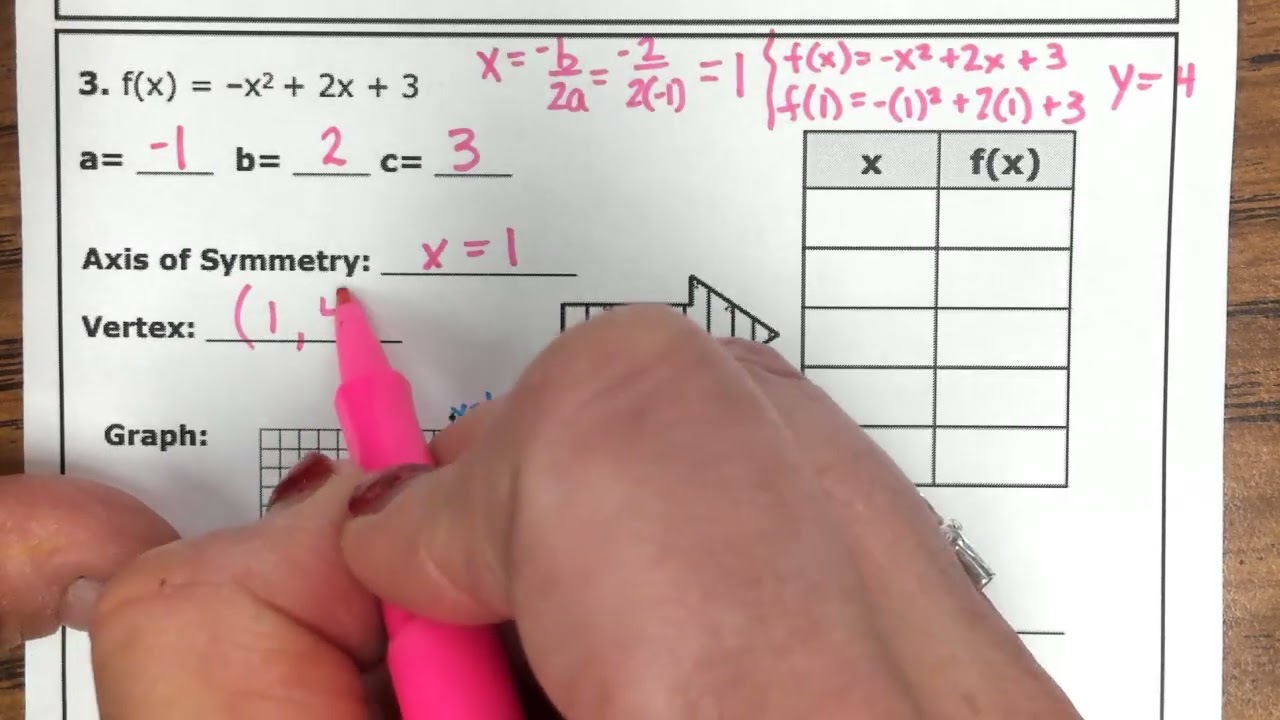 x = -b/2a = -2/2(-1) = 1 { f(x) = -x² + 2x + 3
f(1) = -(1)² + 2(1) + 3 y = 4
3. f(x) = –x² + 2x + 3
a= -1 b= 2 c= 3
x f(x)
Axis of Symmetry: x = 1
Vertex: (1, 4
Graph: